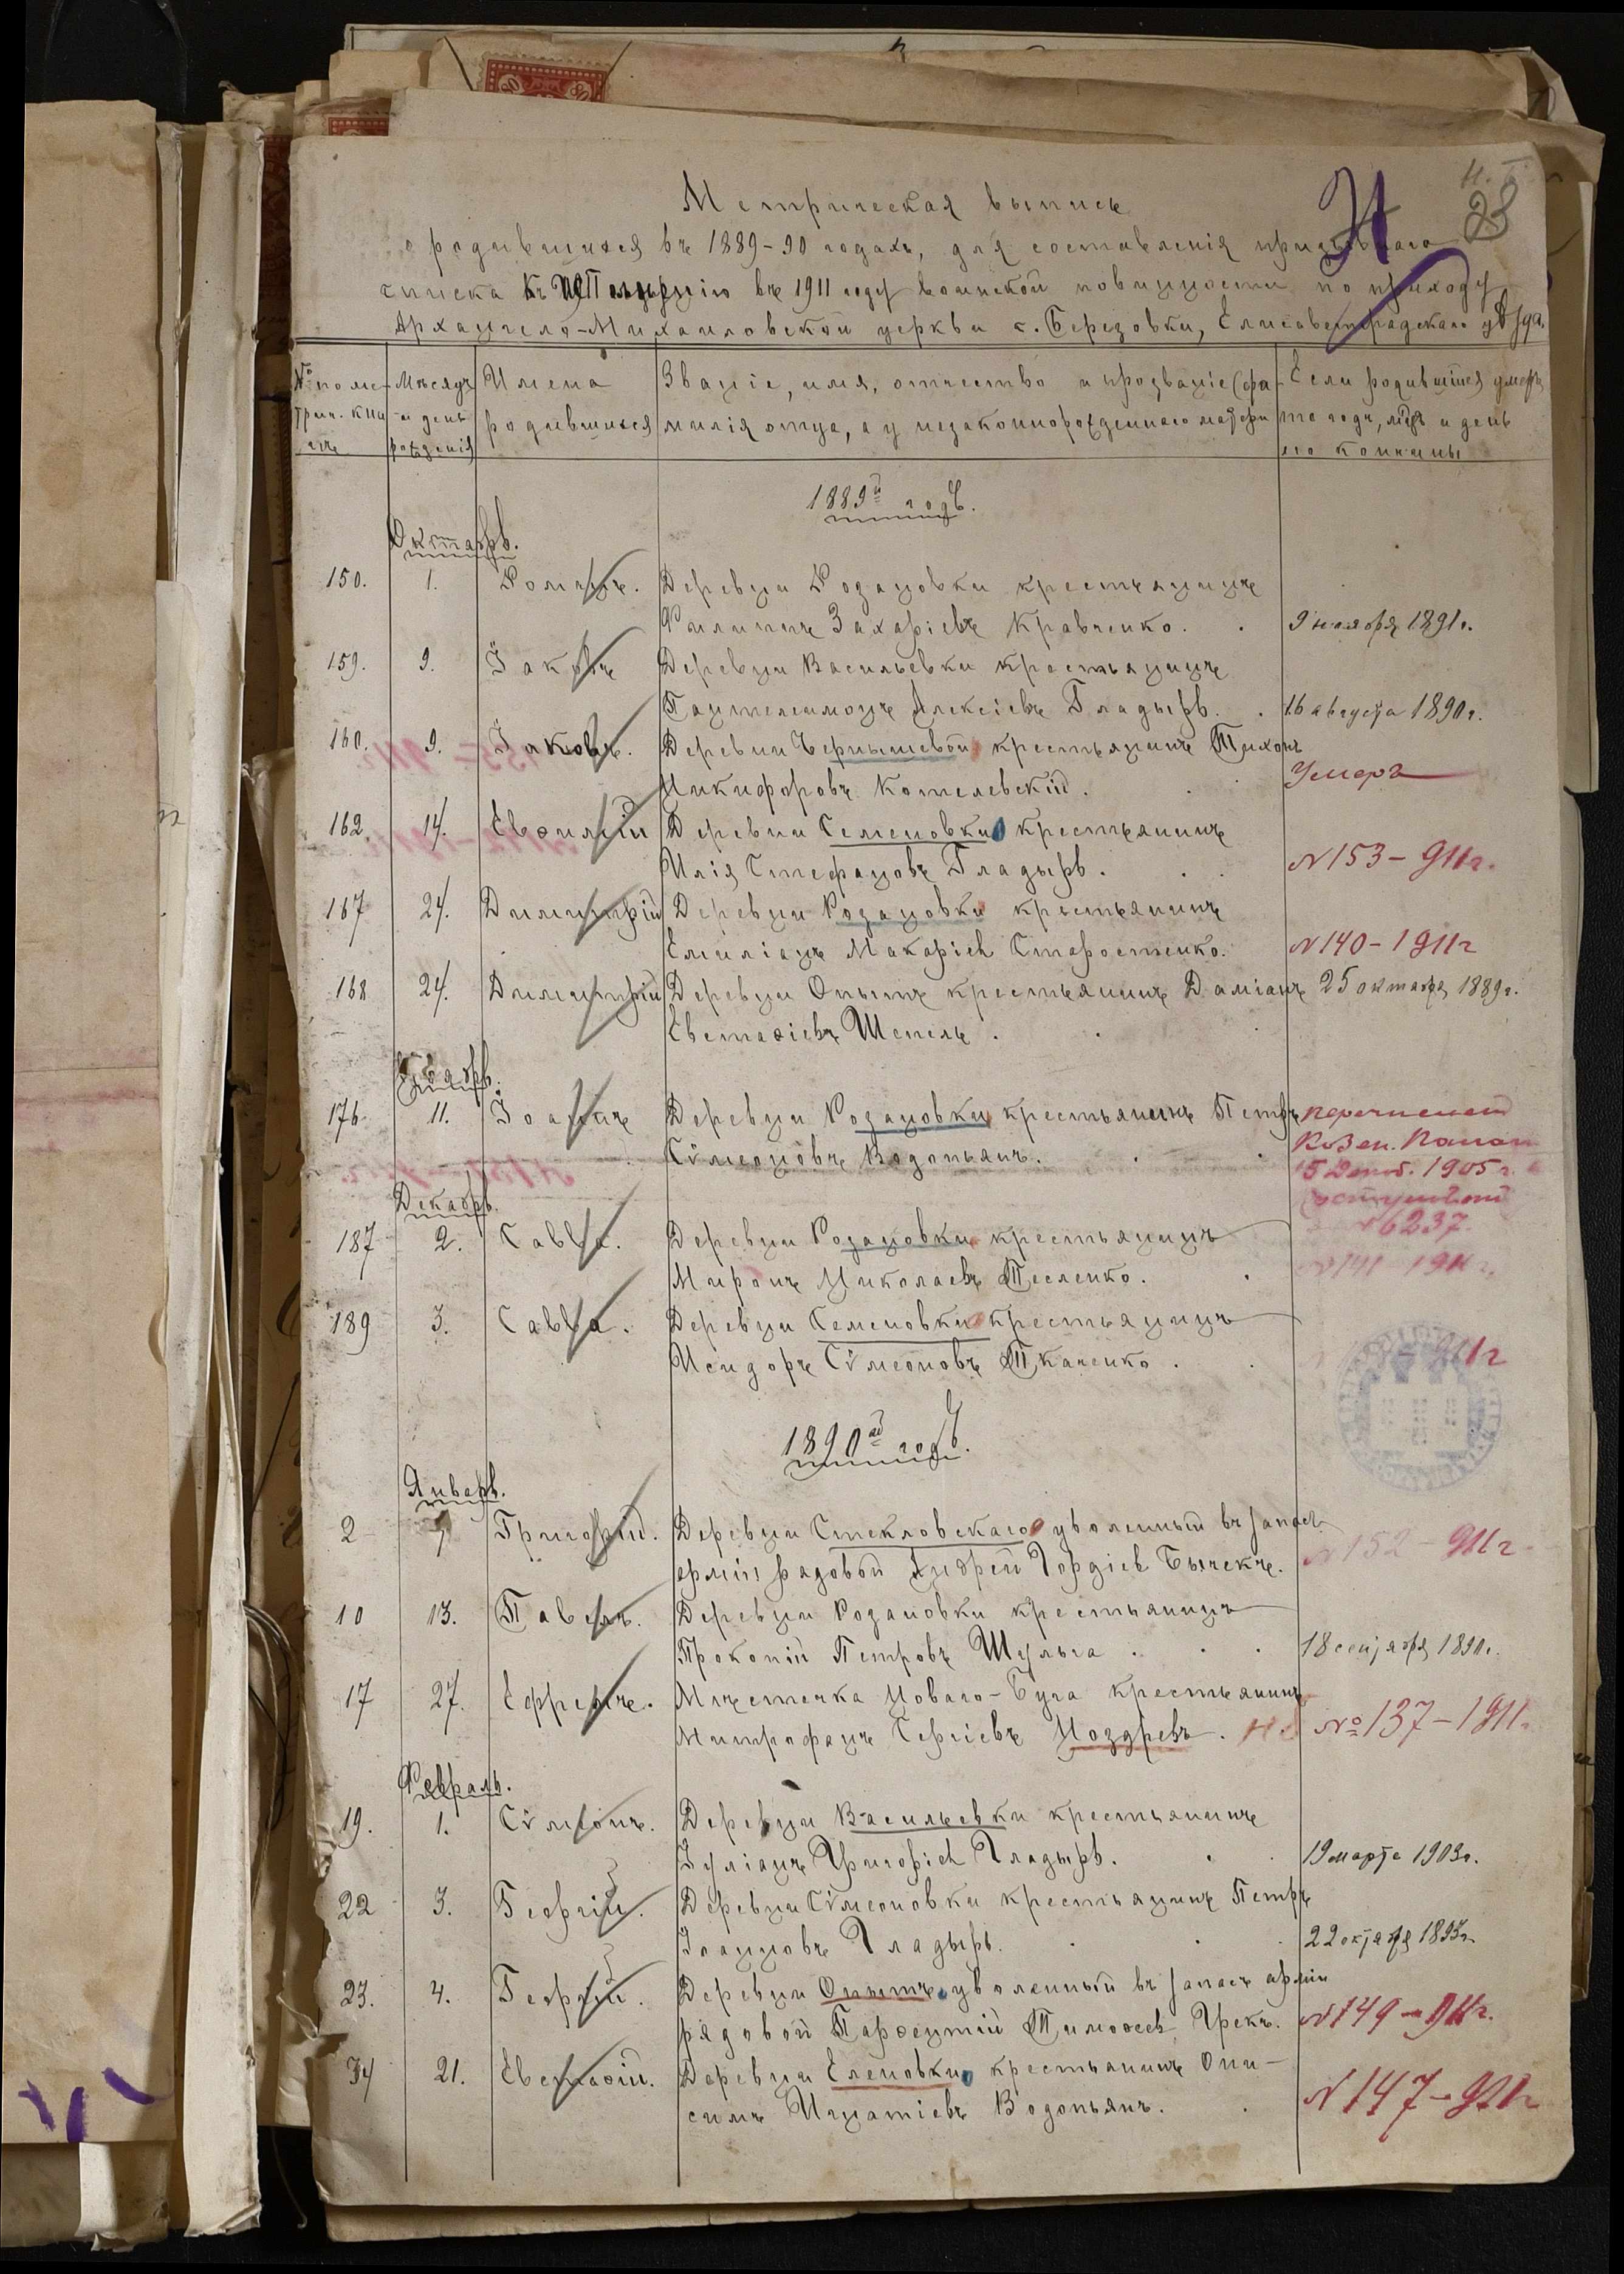 Метрическая выпись
о родившихся въ 1889-90 годахъ, для составленія призывнаго
списка къ исполненію въ 1911 году воинской повинности по приходу
Архангело-Михаиловской церкви с. Березовки, Елисаветградскаго уѣзда.
28
№ по метрич. книгѣ
Мѣсяцъ и день рожденія
Имена родившихся
Званіе, имя, отчество и прозваніе (фамилія отца, а у незаконнорожденнаго матери
Если родившійся умеръ, то годъ, мѣс. и день его кончины
1889й годъ.
Октябрь.
150. 1. Романъ. Деревни Розановки крестьянинъ
Филиппъ Захаріевъ Кравченко. 9 ноября 1891г.
159. 9. Іаковъ Деревни Васильевки крестьянинъ
Пантелеимонъ Алексіевъ Гладырь. 16 августа 1890г.
160. 9. Іаковъ. Деревни Чернышевой крестьянинъ Тихонъ
Никифоровъ Котелевскій. Умеръ
162. 14. Евѳимій Деревни Семеновки крестьянинъ
Илія Стефановъ Гладырь. N153-911г.
167 24. Димитрій Деревни Розановки крестьянинъ
Емиліанъ Макаріевъ Старостенко. N140-1911г
168 24. Димитрій Деревни Опытъ крестьянинъ Даміанъ 25 октября 1889г.
Евстаѳіевъ Шепель.
Ноябрь.
176 11. Іоаннъ Деревни Розановки крестьянинъ Петръ перечислен
Сѵмеоновъ Водопьянъ. Козен. Палат
1905г.
6237.
Декабрь.
187 2. Савва. Деревни Розановки крестьянинъ
Миронъ Николаевъ Тесленко. N141-1911г.
189 3. Савва. Деревни Семеновки крестьянинъ
Исидоръ Сѵмеоновъ Ткаченко. 911г
1890й годъ.
Январь.
2 Григорій. Деревни Стекловскаго уволенный въ запасъ
арміи рядовой Андрей Гордіев Бычекъ. N152-911г
10 13. Павелъ. Деревни Розановки крестьянинъ
Прокопій Петровъ Шульга. 18 сентября 1890г.
17 27. Ефремъ. Мѣстечка Новаго-Буга крестьянинъ
Митрофанъ Сергіевъ Ноздревъ. №137-1911г
Февраль.
19. 1. Сѵмеонъ. Деревни Васильевки крестьянинъ
Іуліанъ Григоріев Гладырь. 19 марта 1903г.
22 3. Георгій. Деревни Сѵмеоновки крестьянинъ Петръ
Іоанновъ Гладырь. 22 октября 1895г.
23. 4. Георгій. Деревни Опытъ уволенный въ запасъ арміи
рядовой Парѳентій Тимоѳеев Грекъ. N149-911г.
34 21. Евстаѳій. Деревни Еленовки крестьянинъ Они-
симъ Игнатіевъ Водопьянъ. N147-911г